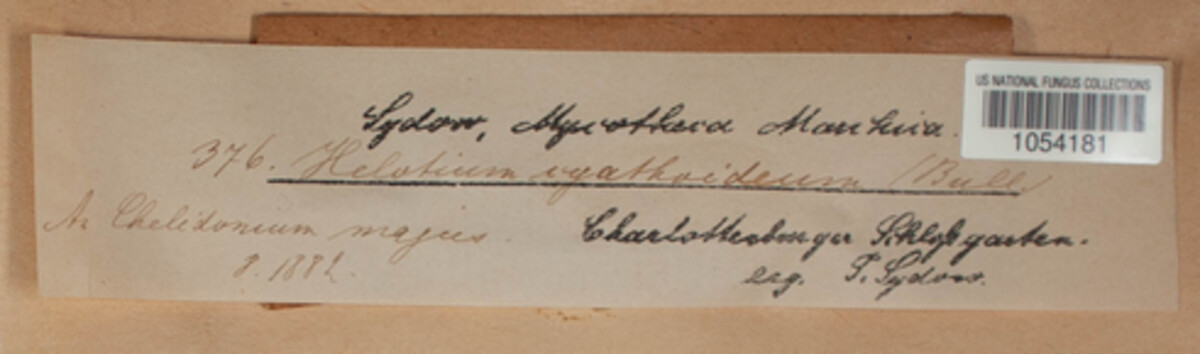 Sydow, Mycotheca Marchica.
US NATIONAL FUNGUS COLLECTIONS
1054181
376. Helotium cyathoideum (Bull.)
An Chelidonium majus.
8. 1882.
Charlottenburger Schloßgarten.
leg. P. Sydow.